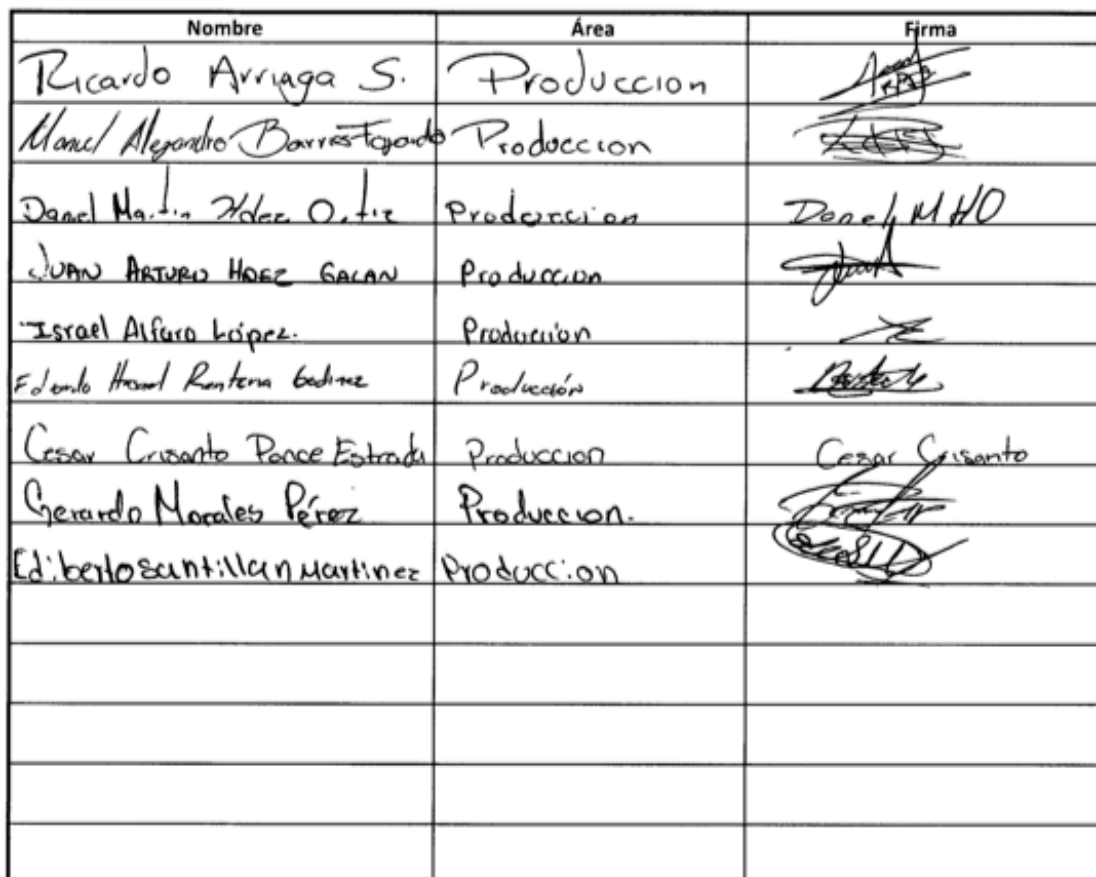 Nombre Área Firma
Ricardo Arriaga S. Produccion
Manuel Alejandro Barrios Fajardo Produccion
Daniel Martin Hdez Ortiz Produccion Daniel M HO
JUAN ARTURO HDEZ GALAN Produccion
Israel Alfaro López. Produccion
Eduardo Renteria Godinez Producción
Cesar Crisanto Ponce Estrada Produccion Cesar Crisanto
Gerardo Morales Pérez Produccion.
Ediberto Santillan Martinez Produccion